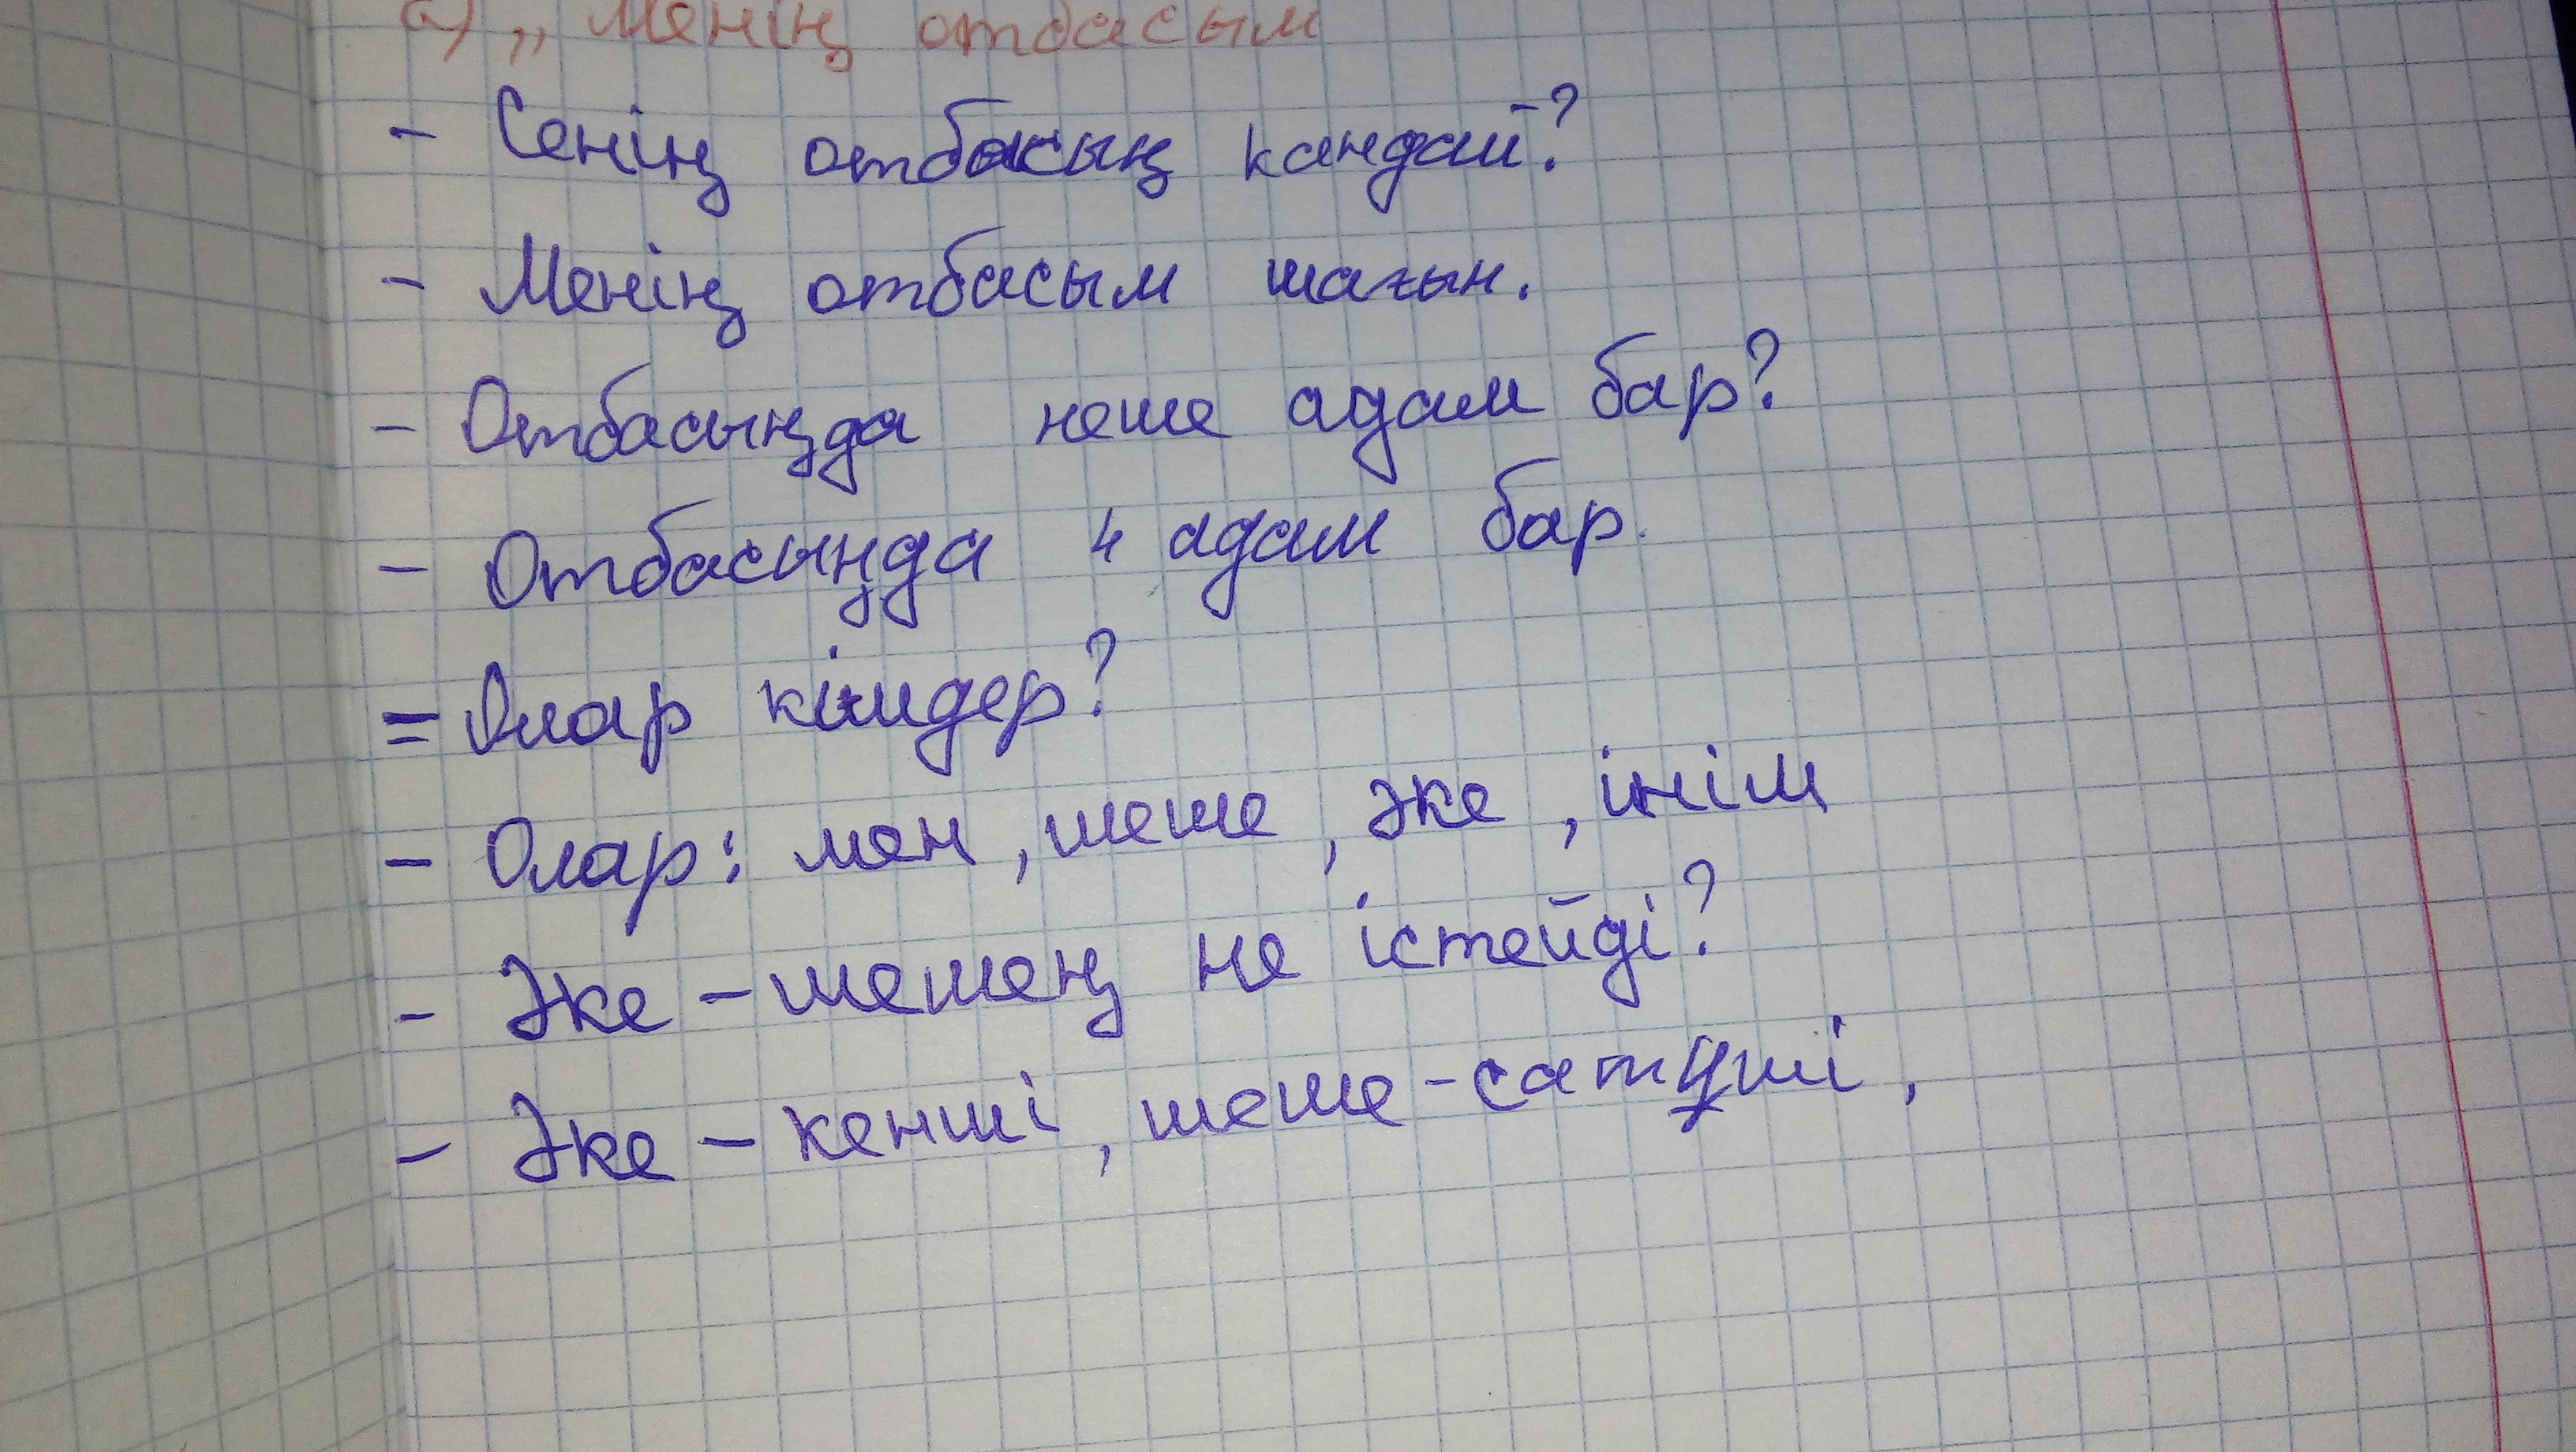 а) „Менің отбасым
- Сенің отбасың кандай?
- Менің отбасым шағын.
- Отбасыңда неше адам бар?
- Отбасыңда 4 адам бар.
= Олар кімдер?
- Олар: мен, шеше, әке, інім
- Әке - шешең не істейді?
- Әке - кенші, шеше - сатуші,